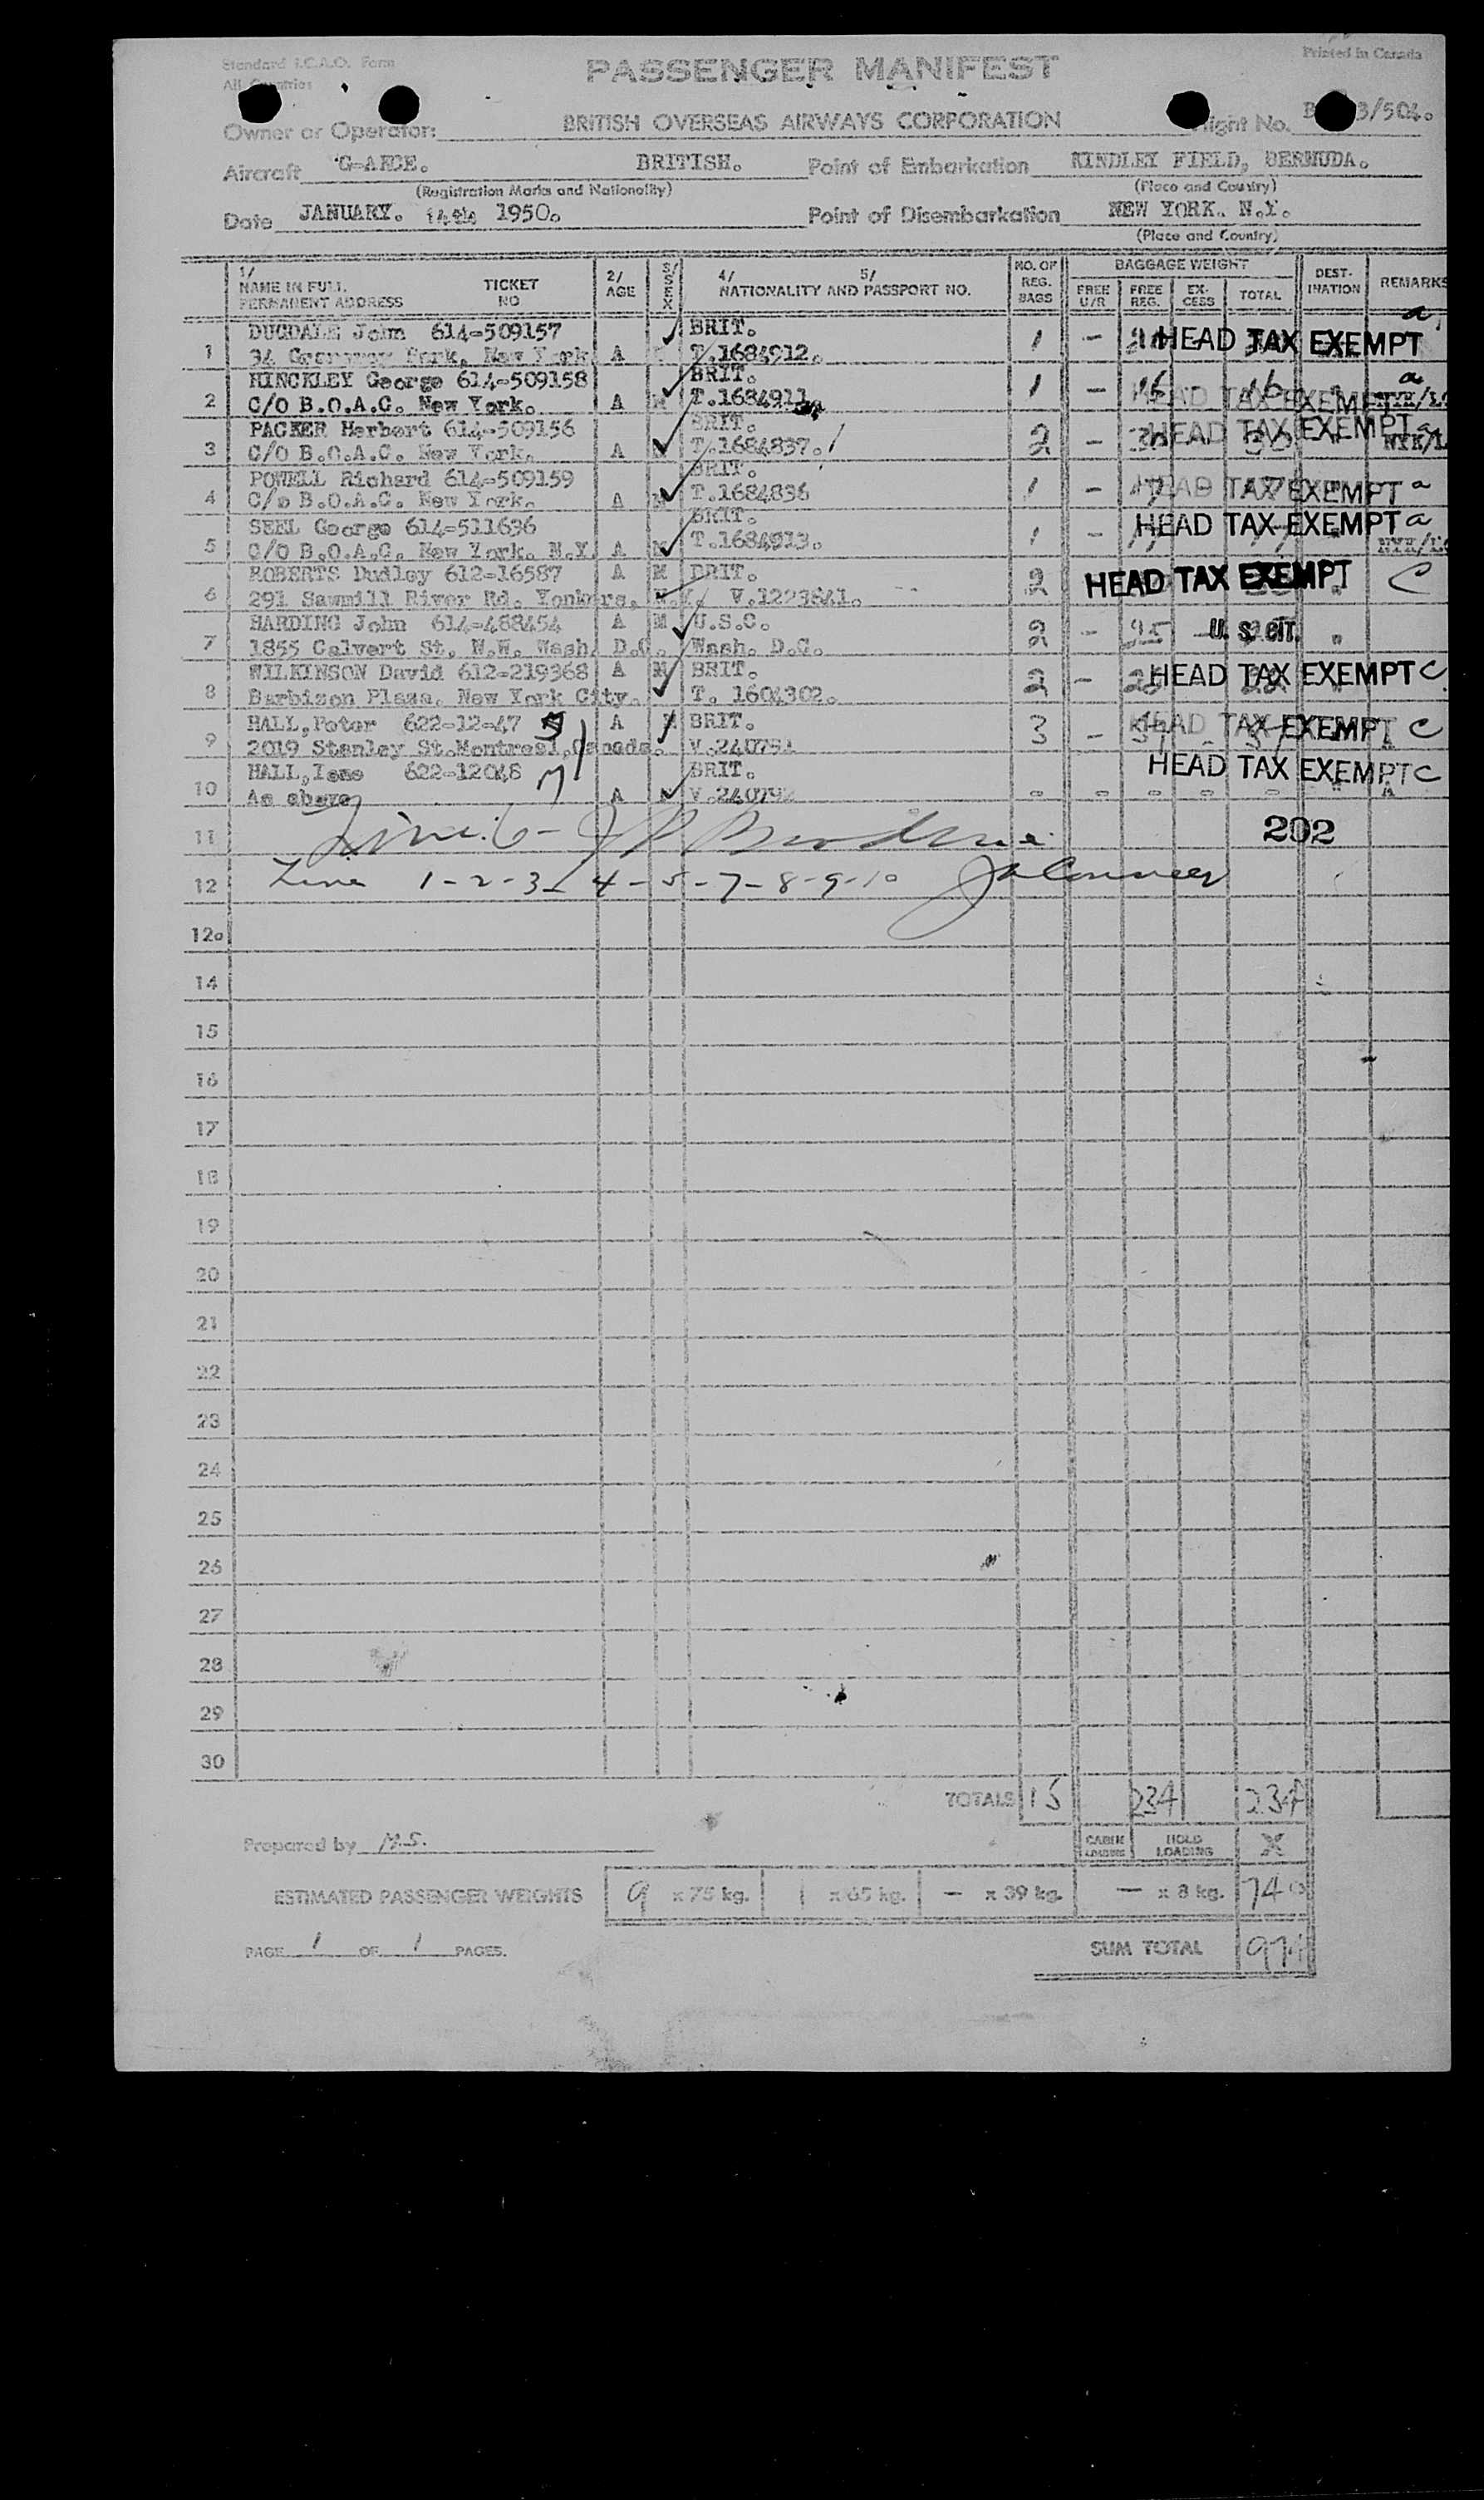 Standard I.C.A.O. Form
All Countries
PASSENGER MANIFEST
Printed in Canada
Owner or Operator: BRITISH OVERSEAS AIRWAYS CORPORATION Flight No. 3/504.
Aircraft BRITISH. Point of Embarkation KINDLEY FIELD, BERMUDA.
(Registration Marks and Nationality) (Place and Country)
Date JANUARY. 14th 1950. Point of Disembarkation NEW YORK. N.Y.
(Place and Country)
1/ NAME IN FULL. PERMANENT ADDRESS TICKET NO 2/ AGE 3/ SEX 4/ 5/ NATIONALITY AND PASSPORT NO. NO. OF REG. BAGS BAGGAGE WEIGHT FREE U/R FREE REG. EX-CESS TOTAL DEST-INATION REMARKS
DUGDALE John 614-509157 BRIT. a
1 34 New York A T.1684912. 1 - HEAD TAX EXEMPT
HINCKLEY George 614-509158 BRIT. a
2 C/O B.O.A.C. New York. A M T.1684911 1 - 16 - 16 HEAD TAX EXEMPT
PACKER Herbert 614-509156 BRIT. HEAD TAX EXEMPT a
3 C/O B.O.A.C. New York. A T.1684837. 2 - 30
POWELL Richard 614-509159 BRIT.
4 C/o B.O.A.C. New York. A M T.1684836 1 - 17 HEAD TAX EXEMPT a
SEEL George 614-511636 BRIT. HEAD TAX EXEMPT a
5 C/O B.O.A.C. New York. N.Y. A M T.1684913. 1 -
ROBERTS Dudley 612-16587 A M BRIT. 2 HEAD TAX EXEMPT C
6 291 Sawmill River Rd. Yonkers, N.Y. V.1223841.
HARDING John 614-488454 A M U.S.C. 2 - 25 - U. S. CIT. "
7 1855 Calvert St. N.W. Wash. D.C. Wash. D.C.
WILKINSON David 612-219368 A M BRIT. 2 - HEAD TAX EXEMPT C
8 Barbizon Plaza, New York City. T. 1604302.
HALL, Peter 622-12-47 A BRIT. 3 - HEAD TAX EXEMPT C
9 2019 Stanley St. Montreal, Canada. V.240791
HALL, 622-12048 BRIT. HEAD TAX EXEMPT C
10 As above A V.240792 - - - - - "
11 Line 6- 202
12 Line 1-2-3-4-5-7-8-9-10
12a
14
15
16
17
18
19
20
21
22
23
24
25
26
27
28
29
30
TOTALS 15 234 234
Prepared by M.S. CABIN LOADING HOLD LOADING X
ESTIMATED PASSENGER WEIGHTS 9 x 75 kg. 1 x 65 kg. — x 39 kg. — x 8 kg. 740
PAGE 1 OF 1 PAGES. SUM TOTAL 974